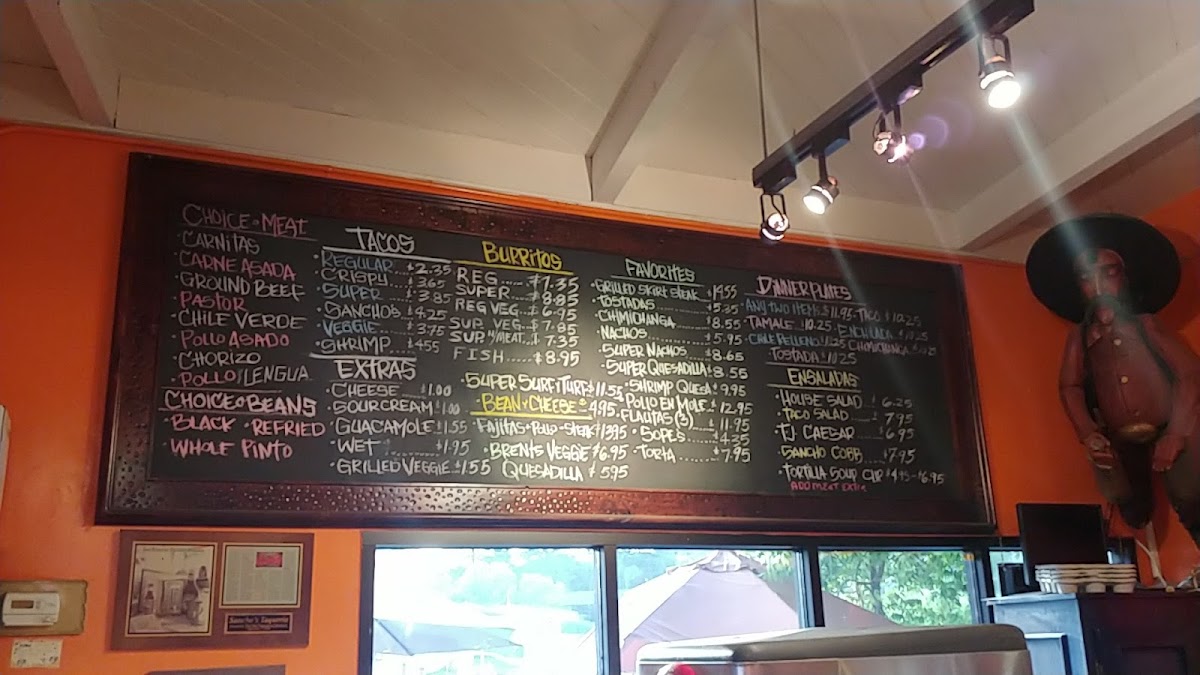 CHOICE OF MEAT
• CARNITAS
• CARNE ASADA
• GROUND BEEF
• PASTOR
• CHILE VERDE
• POLLO ASADO
• CHORIZO
• POLLO LENGUA
CHOICE OF BEANS
• BLACK • REFRIED
• WHOLE PINTO
TACOS
• REGULAR.... $2.35
CRISPY.... $3.65
• SUPER.... $3.85
• SANCHOS.. $4.25
• VEGGIE.... $3.75
• SHRIMP.... $4.55
EXTRAS
CHEESE.... $1.00
• SOUR CREAM. $1.00
• GUACAMOLE. $1.55
• WET........ $1.95
• GRILLED VEGGIE. $1.55
BURRITOS
REG..... $7.35
SUPER..... $8.95
REG VEG... $6.95
SUP. VEG... $7.85
SUP W/MEAT.. $7.35
FISH..... $8.95
• SUPER SURF & TURF $11.55
• BEAN & CHEESE • 4.95
• FAJITAS • POLLO • STEAK $13.95
• BRENTS VEGGIE $6.95
QUESADILLA $5.95
FAVORITES
• GRILLED SKIRT STEAK
TOSTADAS........ $5.35
CHIMICHANGA.... $8.55
NACHOS........ $5.95
• SUPER NACHOS.... $8.65
• SUPER QUESADILLA $8.55
• SHRIMP QUESA $9.95
POLLO EN MOLE.. $12.95
• FLAUTAS (3).... $11.95
• SOPES...... $4.35
• TORTA...... $7.95
DINNER PLATES
• ANY TWO ITEMS $11.95 • TACO $10.25
• TAMALE $10.25 • ENCHILADA $10.25
• CHILE RELLENO CHIMICHANGA
• TOSTADA $10.25
ENSALADAS
• HOUSE SALAD.. $6.25
• TACO SALAD.... $7.95
• T.J. CAESAR.... $6.95
• SANCHO COBB.... $7.95
• TORTILLA SOUP CUP $4.95-$6.95
ADD MEAT EXTRA
Sancho's Taqueria